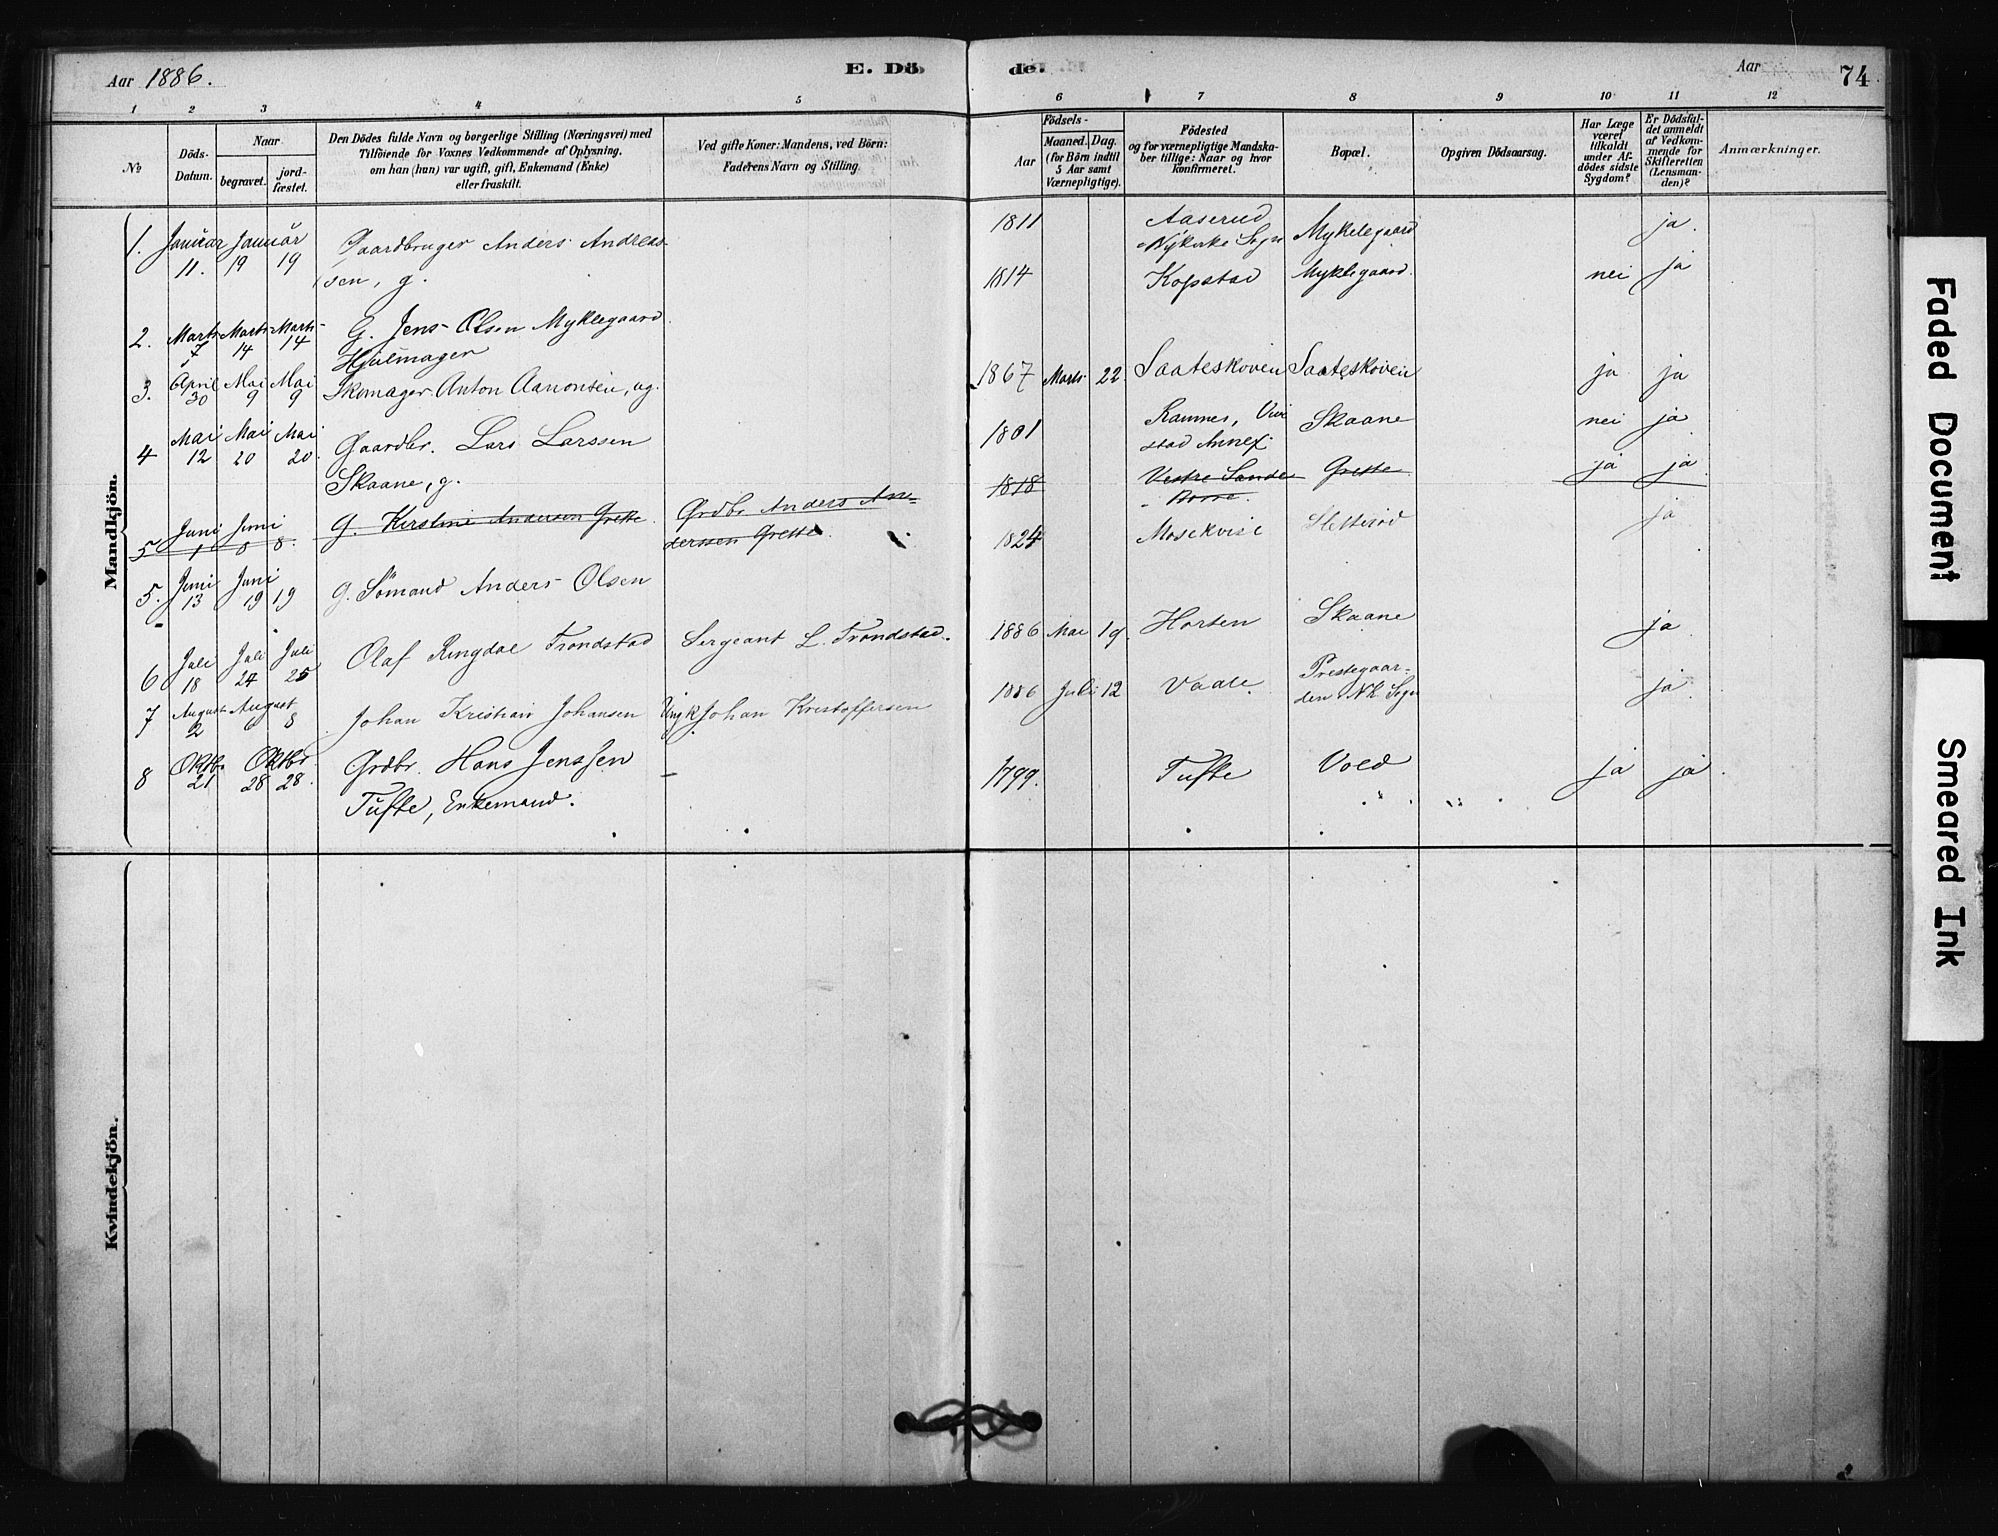 Aar 1886.
E. Dö
de.
Aar
74
1 2 3 4 5 6 7 8 9 10 11 12
No
Döds-
Datum.
Naar
begravet.
jord-
fæstet.
Den Dödes fulde Navn og borgerlige Stilling (Næringsvei) med
Tilföiende for Voxnes Vedkommende af Oplysning,
om han (hun) var ugift, gift, Enkemand (Enke)
eller fraskilt.
Ved gifte Koner: Mandens, ved Börn:
Faderens Navn og Stilling.
Födsels-
Aar
Maaned. Dag.
(for Börn indtil
5 Aar samt
Værnepligtige).
Födested
og for værnepligtige Mandska-
ber tillige: Naar og hvor
konfirmeret.
Bopæl.
Opgiven Dödsaarsag.
Har Læge
været
tilkaldt
under Af-
dödes sidste
Sygdom?
Er Dödsfal-
det anmeldt
af Vedkom-
mende for
Skifteretten
(Lensman-
den)?
Anmærkninger.
Mandkjön.
1. Januar Januar Gaardbruger Anders Andreas-
11. 19 19 sen, g.
1811 Aaserud Mykelegaard ja.
Nykirke Sogn
2. Marts Marts Marts G. Jens Olsen Myklegaard
7 14 14 Hjulmager
1814 Kopstad Myklegaard. nei ja
3. April Mai Mai Skomager Anton Aanonsen, ug.
30 9 9
1867 Marts 22. Saateskoven Saateskoven ja ja
4 Mai Mai Mai Gaardbr. Lars Larssen
12 20 20. Skaane, g.
1801 Ramnes, Vivestad Annex. Skaane nei ja
5 Juni Juni G. Kirstine Andersen Grette Grdbr Anders An-
1 8 8. derssen Grette.
1818 Vestre Sande Grette ja ja
Borre.
5. Juni Juni g. Sømand Anders Olsen
13 19 19
1824 Mosekvist Sletterød ja
6 Juli Juli Juli Olaf Ringdal Trondstad Sergeant L. Trondstad.
18 24 25
1886 Mai 19. Horten Skaane ja
7 August August Johan Kristian Johansen Ungk Johan Kristoffersen
2 8
1886 Juli 12 Vaale. Prestegaar-
den Nk. Sogn ja.
8 Oktbr Oktbr Grdbr. Hans Jenssen –
21 28 28. Tufte, Enkemand.
1799. Tufte Vold ja ja.
Kvindekjön.
Faded Document
Smeared Ink